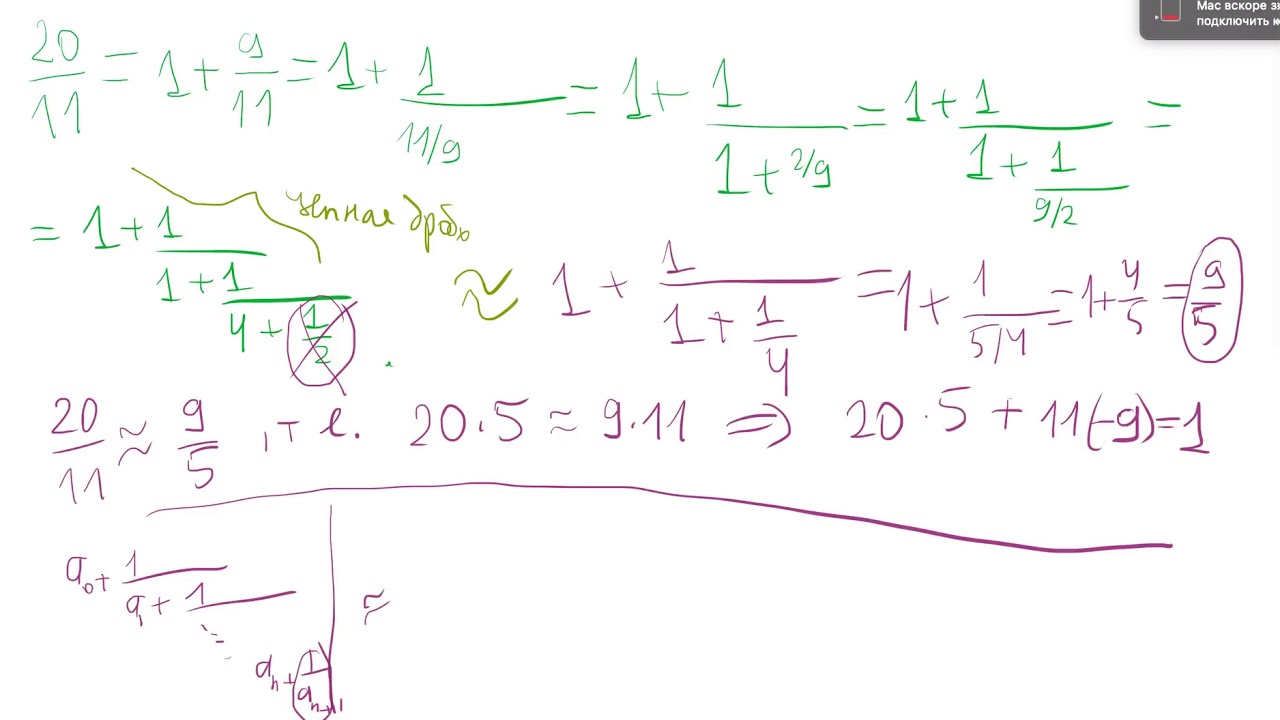 Mac вскоре з
подключить к
20/11 = 1 + 9/11 = 1 + 1/(11/9) = 1 + 1/(1 + 2/9) = 1 + 1/(1 + 1/(9/2)) =
= 1 + 1/(1 + 1/(4 + 1/2))
цепная дробь
≈ 1 + 1/(1 + 1/4) = 1 + 1/(5/4) = 1 + 4/5 = 9/5
20/11 ≈ 9/5 , т е. 20·5 ≈ 9·11 ⇒ 20·5 + 11(-9) = 1
a₀ + 1/(a₁ + 1/(⋱ aₙ + 1/aₙ₊₁)) ≈